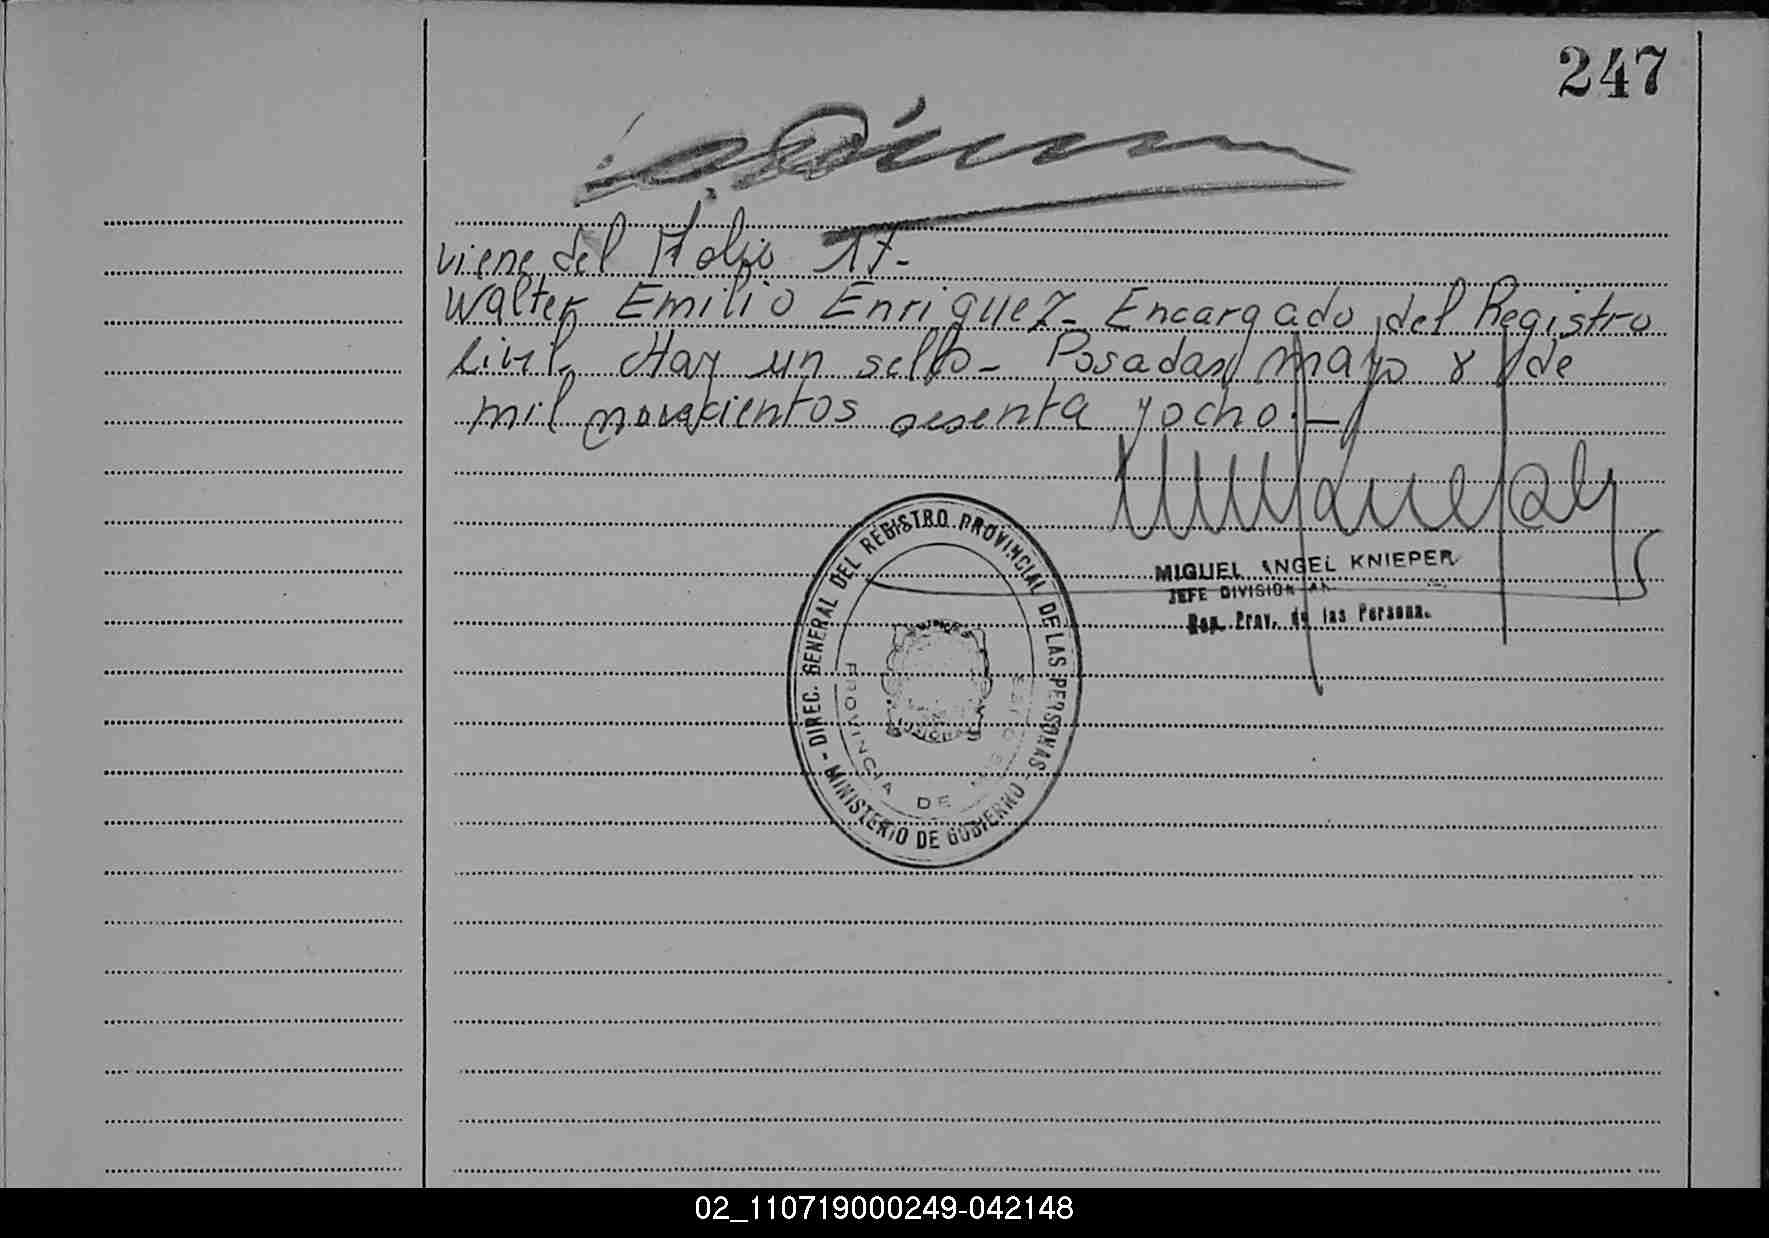 247
viene del Folio 17.-
Walter Emilio Enriquez- Encargado del Registro
Civil. Hay un sello- Posadas, mayo 8 de
mil novecientos sesenta y ocho.-
MIGUEL ANGEL KNIEPER
JEFE DIVISION
Reg. Prov. de las Persona.
- DIREC. GENERAL DEL REGISTRO PROVINCIAL DE LAS PERSONAS -
MINISTERIO DE GOBIERNO
PROVINCIA DE
02_110719000249-042148